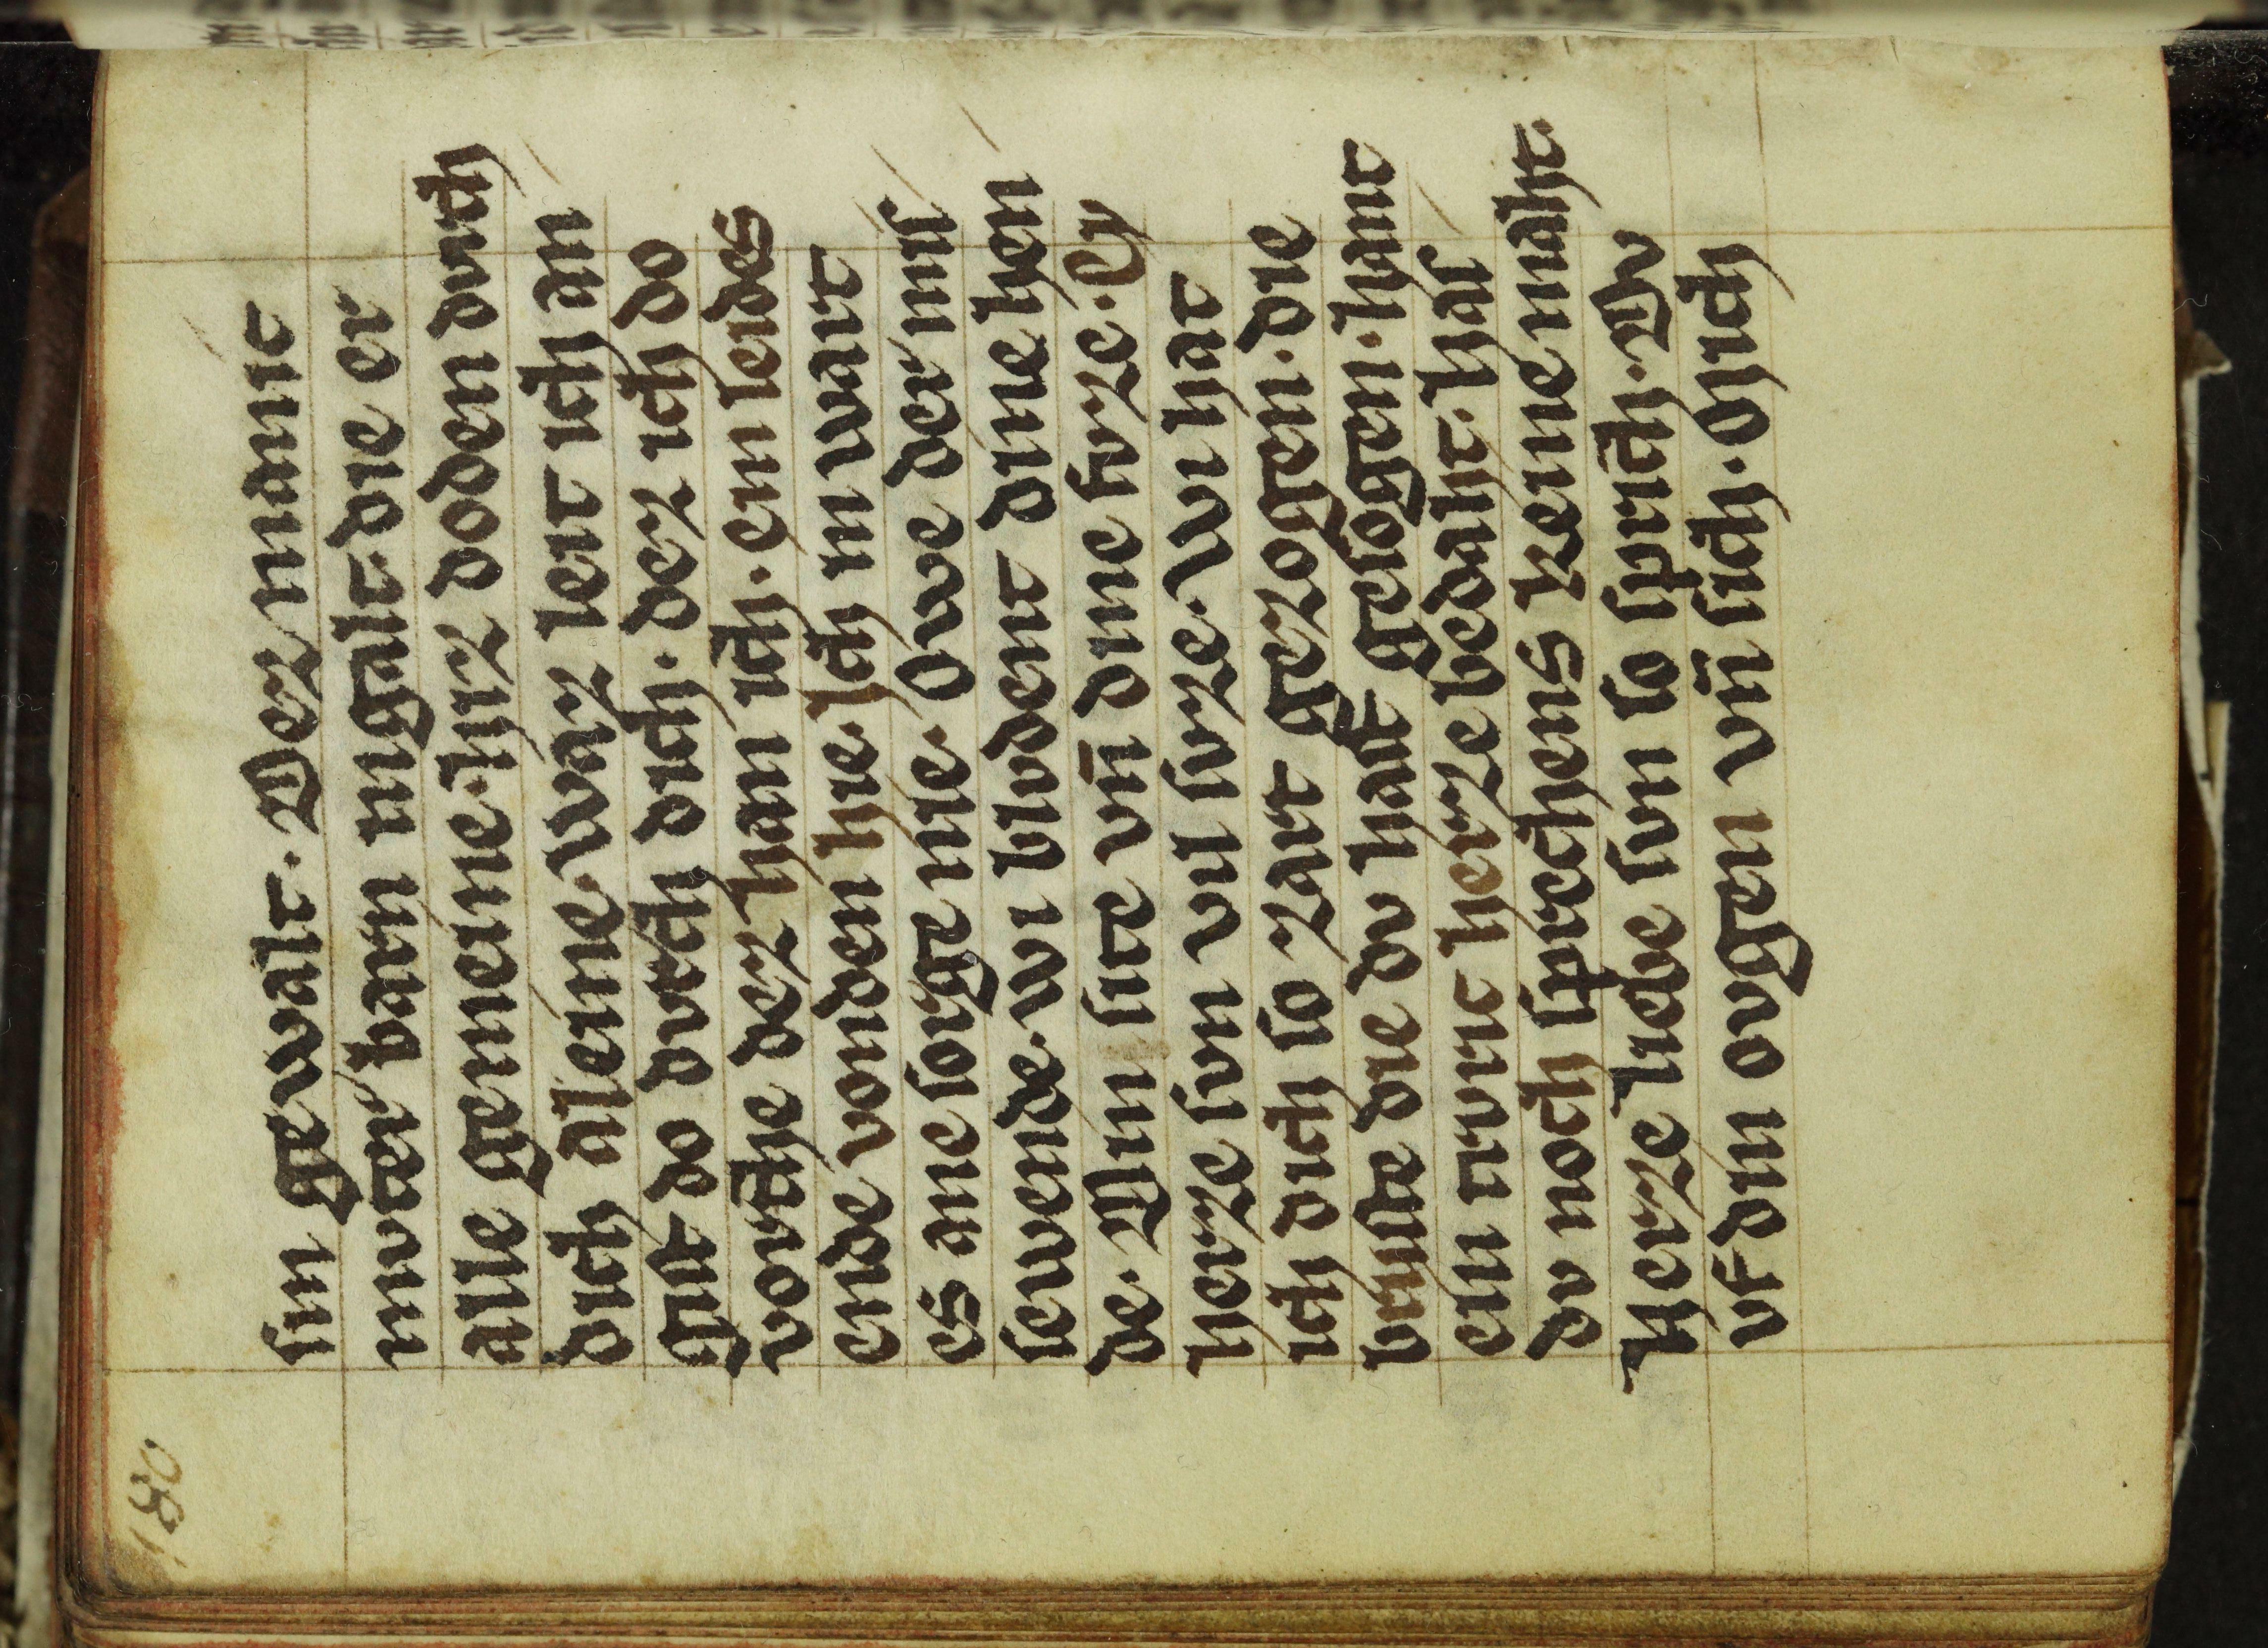 180
sin gewalt. Dez manit
mvter barn nigalt. die er
alle gemeine. hiz doden durch
dich aleine. waz leit ich an
gist do dvrch dich. dez ich do
vorthe dez han ich. ein leides
ende vonden hie. Ich in wart
es ane sorge nie. Owe der mis
sewende. wi bludent dine hen
de. Min site vn̄ dine fvze. Ey
herze svn vil svze. Wi hat
ich dich so zart gezogen. die
bruste die dv hast gesogen. hant
ein ruwic herze bedaht. has
dv noch sprechens keine maht.
Herze liebe svn so sprich. Dv
vf din ovgen vn̄ sich. Sprich